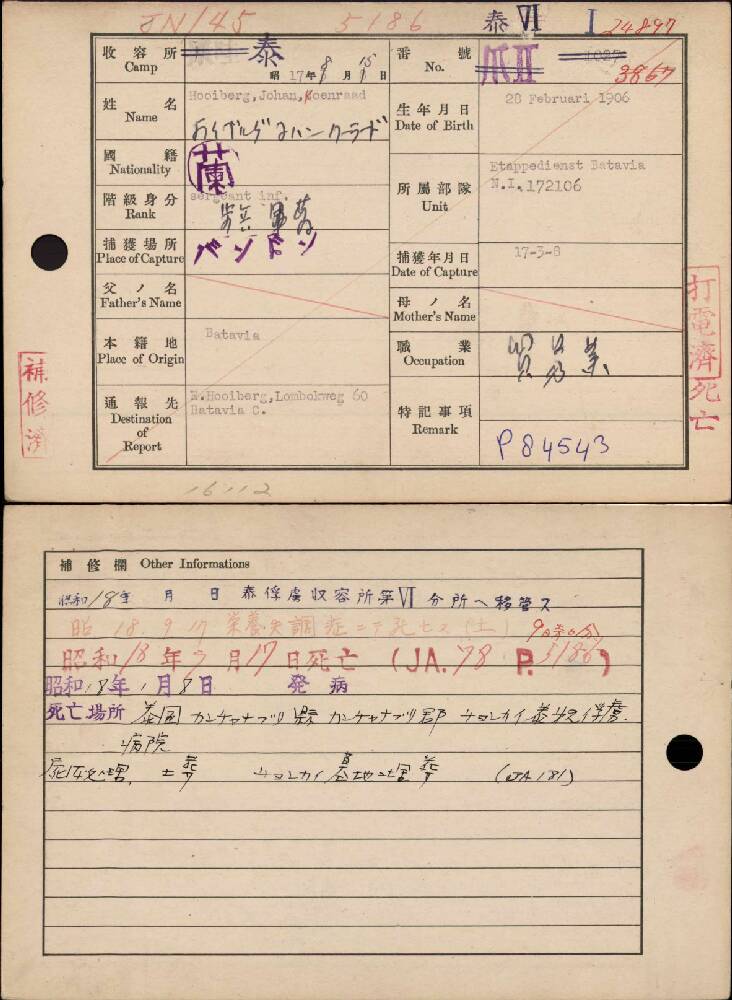 JN/145 5186 泰 VI I 24897
收容所 Camp 泰 昭 17年 8月 15日
番號 No. 爪II 1027 3867
姓名 Name Hooiberg, Johan, Koenraad
生年月日 Date of Birth 28 Februari 1906
國籍 Nationality 蘭
階級身分 Rank sergeant inf.
所屬部隊 Unit Etappedienst Batavia
N.I. 172106
捕獲場所 Place of Capture バンドン
捕獲年月日 Date of Capture 17-3-8
父ノ名 Father's Name
母ノ名 Mother's Name
本籍地 Place of Origin Batavia
職業 Occupation
通報先 Destination of Report
Hooiberg, Lombokweg 60
Batavia C.
特記事項 Remark
P84543
補修済
打電濟
死亡
16112
補修欄 Other Informations
昭和18年 月 日 泰俘虜収容所第VI分所へ移管ス
昭 18.9.17 栄養失調症ニテ死亡ス(土)
昭和18年9月17日死亡 (JA.78 P.5186)
昭和18年1月8日 発病
死亡場所 泰国カンチャナブリ県カンチャナブリ郡チョンカイ泰俘虜
病院
土葬 チョンカイ墓地ニ埋葬 (JA181)